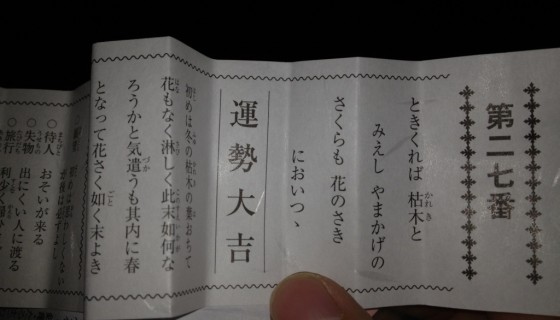 第二七番
ときくれば 枯木と
みえし やまかげの
さくらも 花のさき
においつゝ
運勢大吉
初めは冬の枯木の葉おちて
花もなく淋しく此末如何な
ろうかと気遣うも其内に春
となって花さく如く末よき
○待人 おそいが来る
○失物 出にくい人に渡る
○旅行